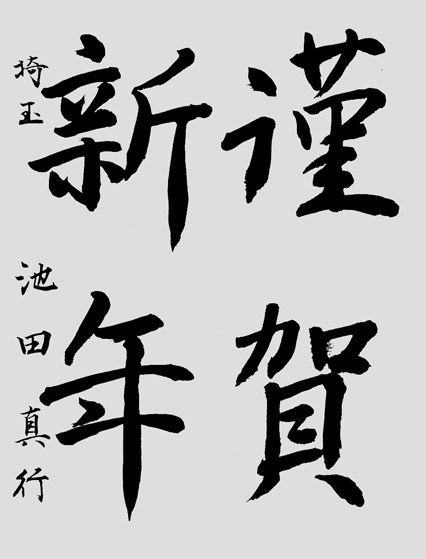 謹賀
新年
埼玉 池田真行